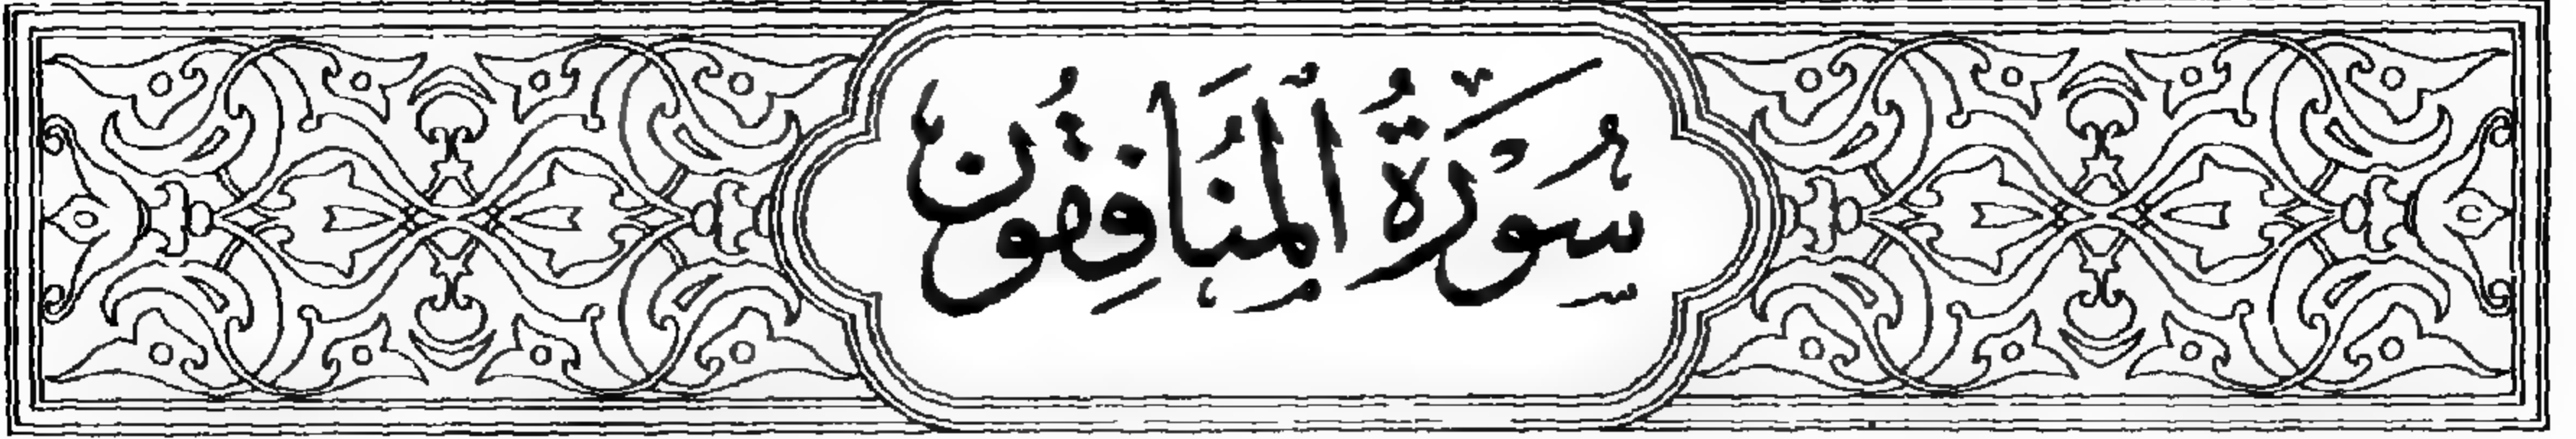 سُورَةُ ٱلْمُنَافِقُون